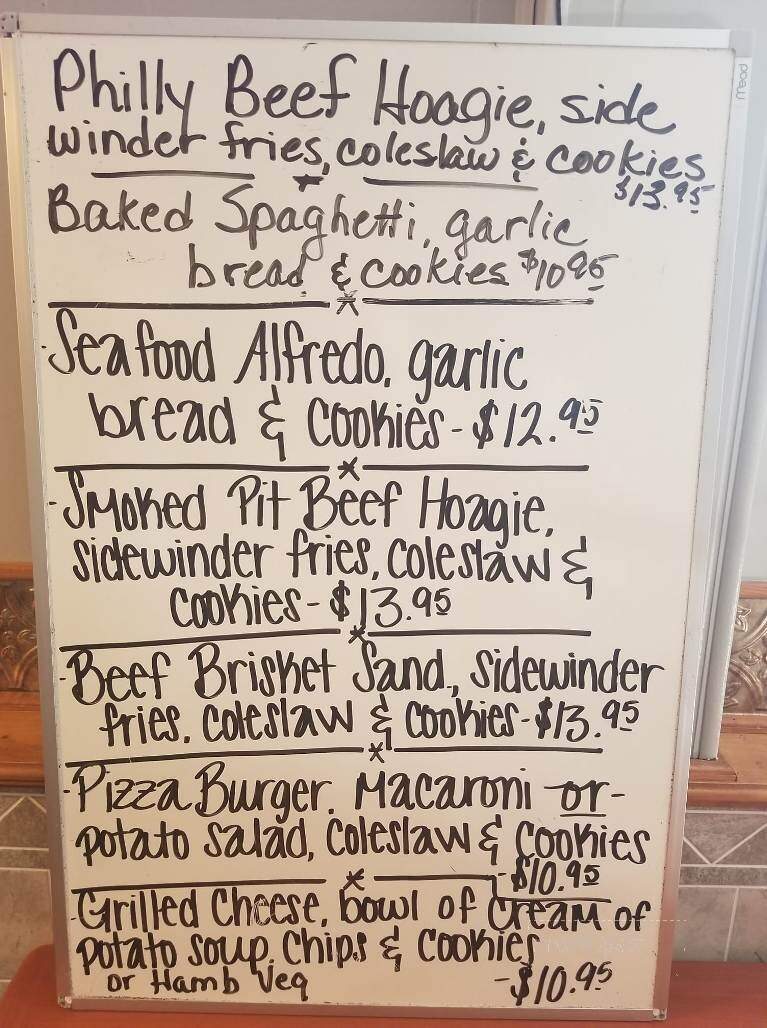 Philly Beef Hoagie, side
winder fries, coleslaw & cookies
$13.95
Baked Spaghetti, garlic
bread & cookies $10 95
Seafood Alfredo, garlic
bread & Cookies - $12.95
- Smoked Pit Beef Hoagie,
sidewinder fries, coleslaw &
Cookies - $13.95
- Beef Brisket Sand., sidewinder
fries, coleslaw & cookies - $13.95
- Pizza Burger, Macaroni or -
potato salad, Coleslaw & Cookies
- $10.95
- Grilled Cheese, bowl of Cream of
potato soup, Chips & Cookies
or Hamb Veg
- $10.95
mead